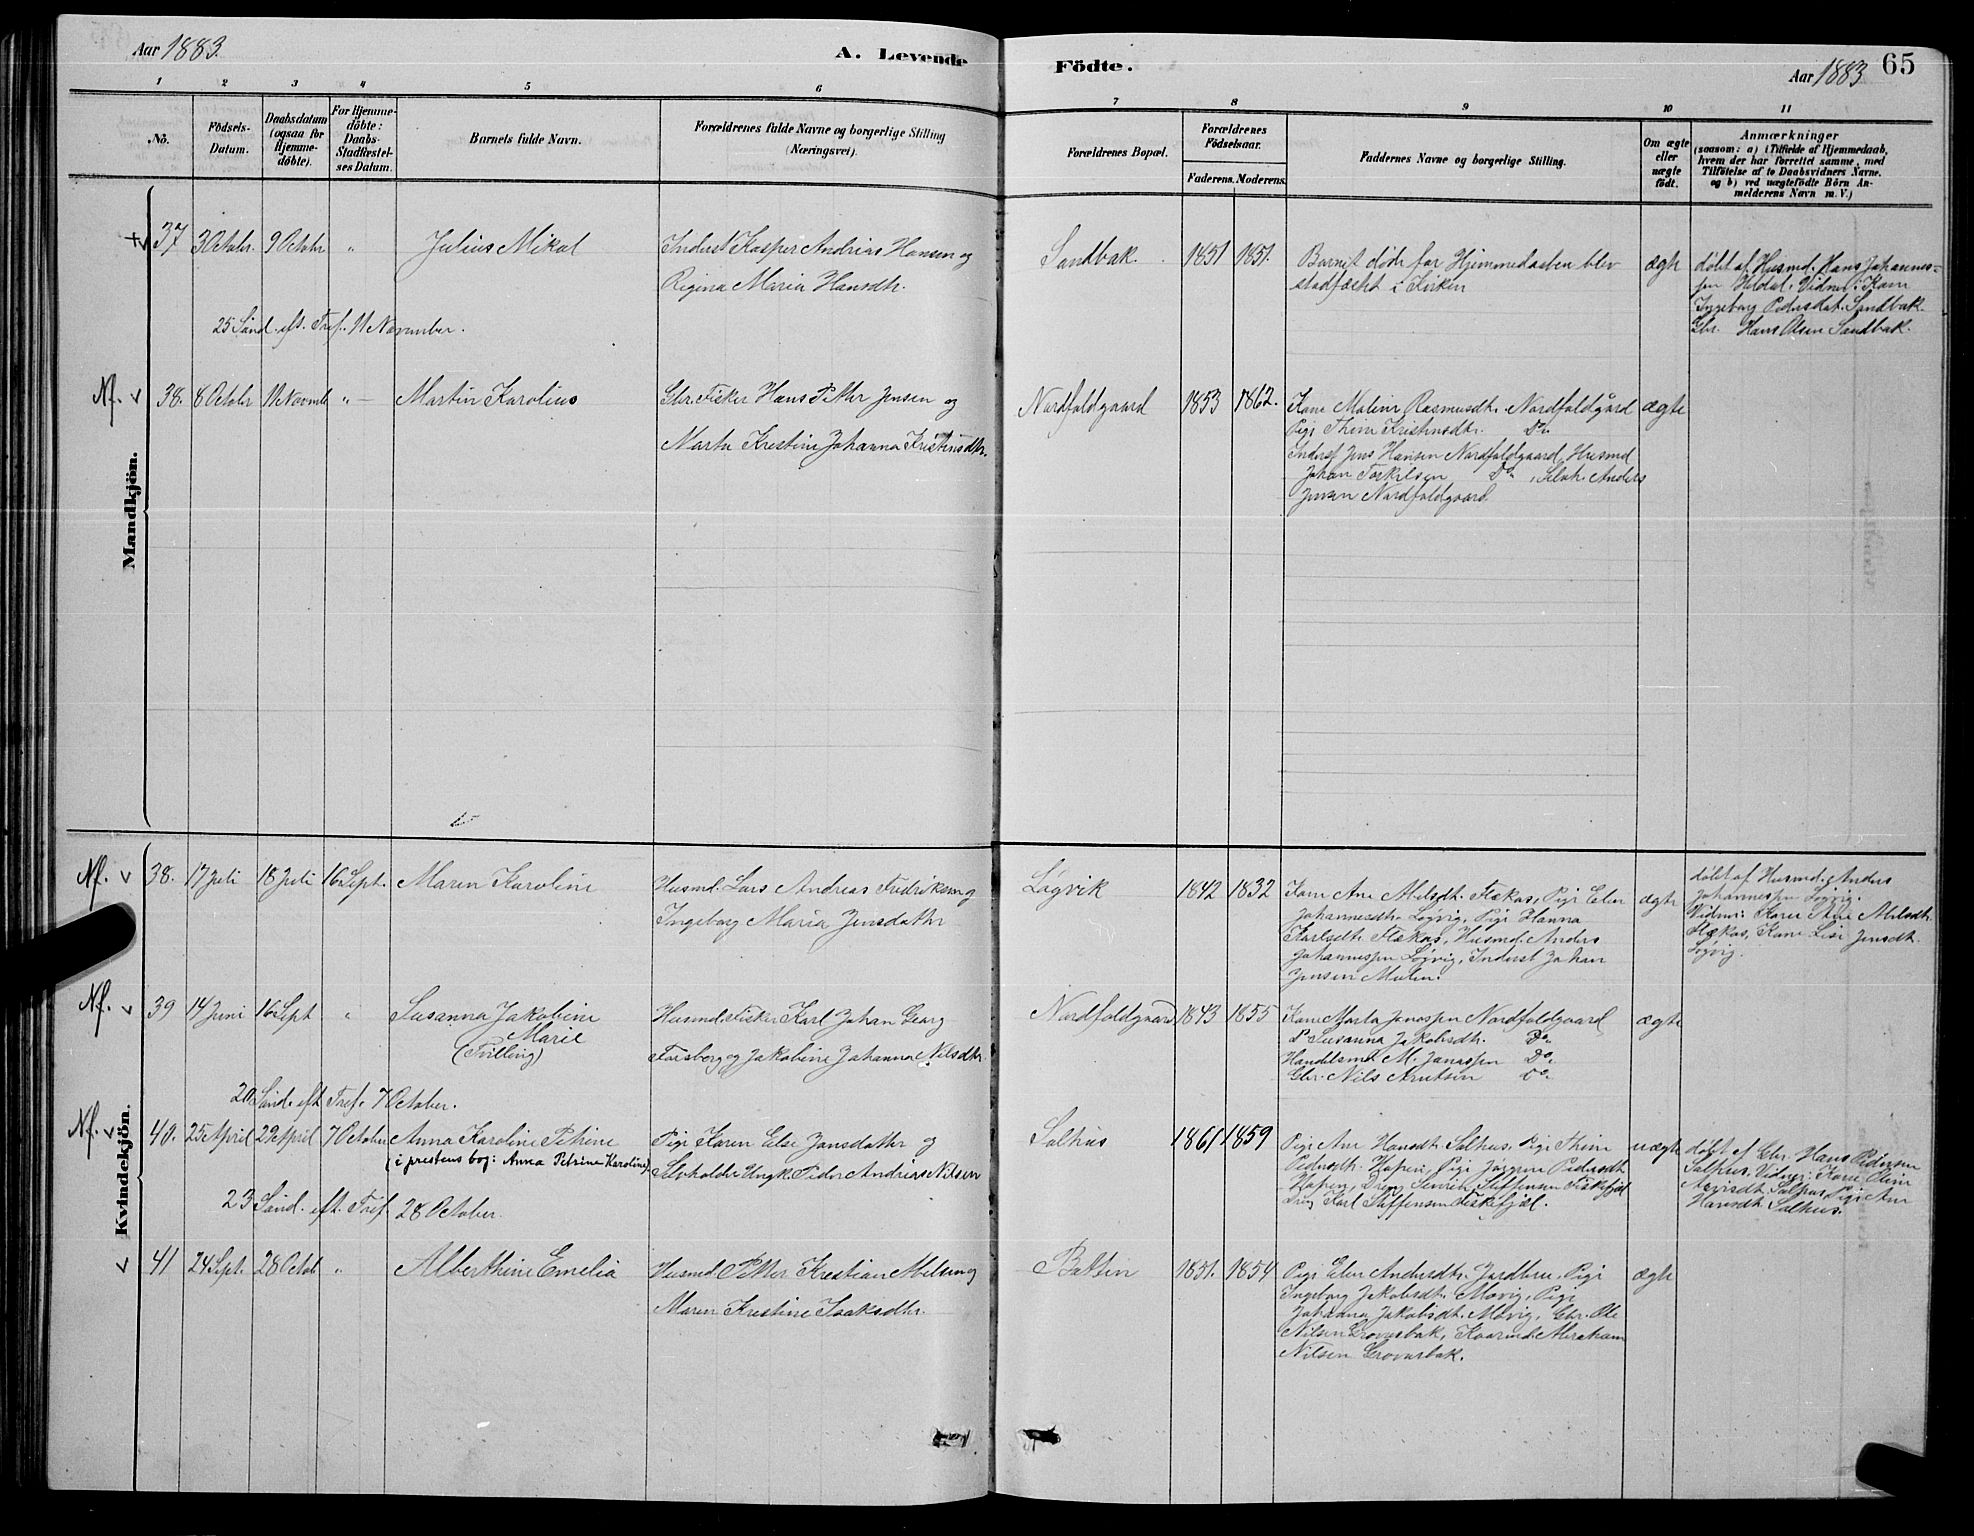 Aar 1883.
A. Levende
Födte.
Aar 1883
65
1 2 3 4 5 6 7 8 9 10 11
No.
Födsels-Datum.
Daabsdatum (ogsaa for Hjemme-döbte).
For Hjemme-döbte: Daabs-Stadfæstel-ses Datum.
Barnets fulde Navn.
Forældrenes fulde Navne og borgerlige Stilling
(Næringsvei).
Forældrenes Bopæl.
Forældrenes Födselsaar.
Faderens. Moderens.
Faddernes Navne og borgerlige Stilling.
Om ægte eller uægte födt.
Anmærkninger
(saasom: a) i Tilfælde af Hjemmedaab,
hvem der har forrettet samme, med
Tilföielse af to Daabsvidners Navne.
og b) ved uægtefödte Börn An-
melderens Navn m. V.)
Mandkjön.
37 3 Octobr. 9 Octobr " Julius Mikal
Inderst Kasper Andrias Hansen og
Regina Maria Hansdtr.
Sandbak. 1851 1851.
Barnet døde før Hjemmedaaben blev
stadfæstet i Kirken
ægte
døbt af Husmd. Hans Johannes-
sen Vidner: Kone
Ingeborg Pedersdat. Sandbak
Gbr. Hans Olsen Sandbak.
25 Sønd. eft. Tref. 11 November.
Nf. v 38. 8 Octobr 11 Novmb " Martin Karolius
Gbr. Fisker Hans Pitter Jensen og
Marta Kristine Johanna Kristensdtr.
Nordfoldgaard 1853 1862.
Kone Maline Rasmusdt. Nordfoldgård
Pige Kristensdtr. Do.
Inderst Jens Hansen Nordfoldgaard, Husmd
Johan Torkilsen Do, Selvh. Anders
Jensen Nordfoldgaard
ægte
Kvindekjön.
Nf. v 38. 17 Juli 18 Juli 16 Sept. Maren Karoline
Husmd. Lars Andreas Fredriksen og
Ingeborg Maria Jensdatter
Løgvik 1842 1832
Kone Ane Abelsdt. Flækas, Pige Elen
Johannesdtr Løgvig, Pige Hanna
Karlsdt. Flækas, Husmd. Anders
Johannessen Løgvig, Inderst Johan
Jensen
ægte
døbt af Husmd. Anders
Johannessen Løgvig.
Vidner: Kone Ane Abelsdt.
Flækas, Kone Lise Jensdt.
Løgvig.
Nf. v 39 14 Juni 16 Sept " Susanna Jakobine
Marie
(Tvilling)
Husmd. Fisker Karl Johan Georg
Forsberg og Jakobine Johanna Nilsdtr.
Nordfoldgaard 1843 1855
Kone Marta Jonassen Nordfoldgaard
Do Susanna Jakobsdt. Do.
Handelsmd M. Jonassen Do.
Gbr. Nils Arntsen Do.
ægte
20 Sønd. eft Tref. 7 October.
Nf. v 40. 25 April 29 April 7 October Anna Karoline Petrine
(i prestens bog: Anna Petrine Karoline)
Pige Karen Else Jonsdatter og
Selvholder Ungk. Peder Andreas Nilsen
Salhus 1861 1859
Pige Ane Hansdt. Salhus. Pige
Pedersdt. Pige Jørgine Pedersdt
Dreng Steffensen Fiskefjæl
Dreng Karl Steffensen Fiskefjæl.
uægte
døbt af Gbr. Hans Pedersen
Salhus. Vidner: Kone Oline
Salhus, Pige Ane
Hansdt. Salhus.
23 Sønd. eft. Tref 28 October.
v 41 24 Sept. 28 Octob " Alberthine Emelia
Husmd. Pitter Kristian Abelsen og
Maren Kristine Isaksdtr.
1851. 1854
Pige Elen Andersdt. Pige
Ingeborg Jakobsdt. Møvig, Pige
Johanna Jakobsdt. Møvig, Gbr. Ole
Nilsen Grovasbak, Abraham
Nilsen Grovasbak.
ægte